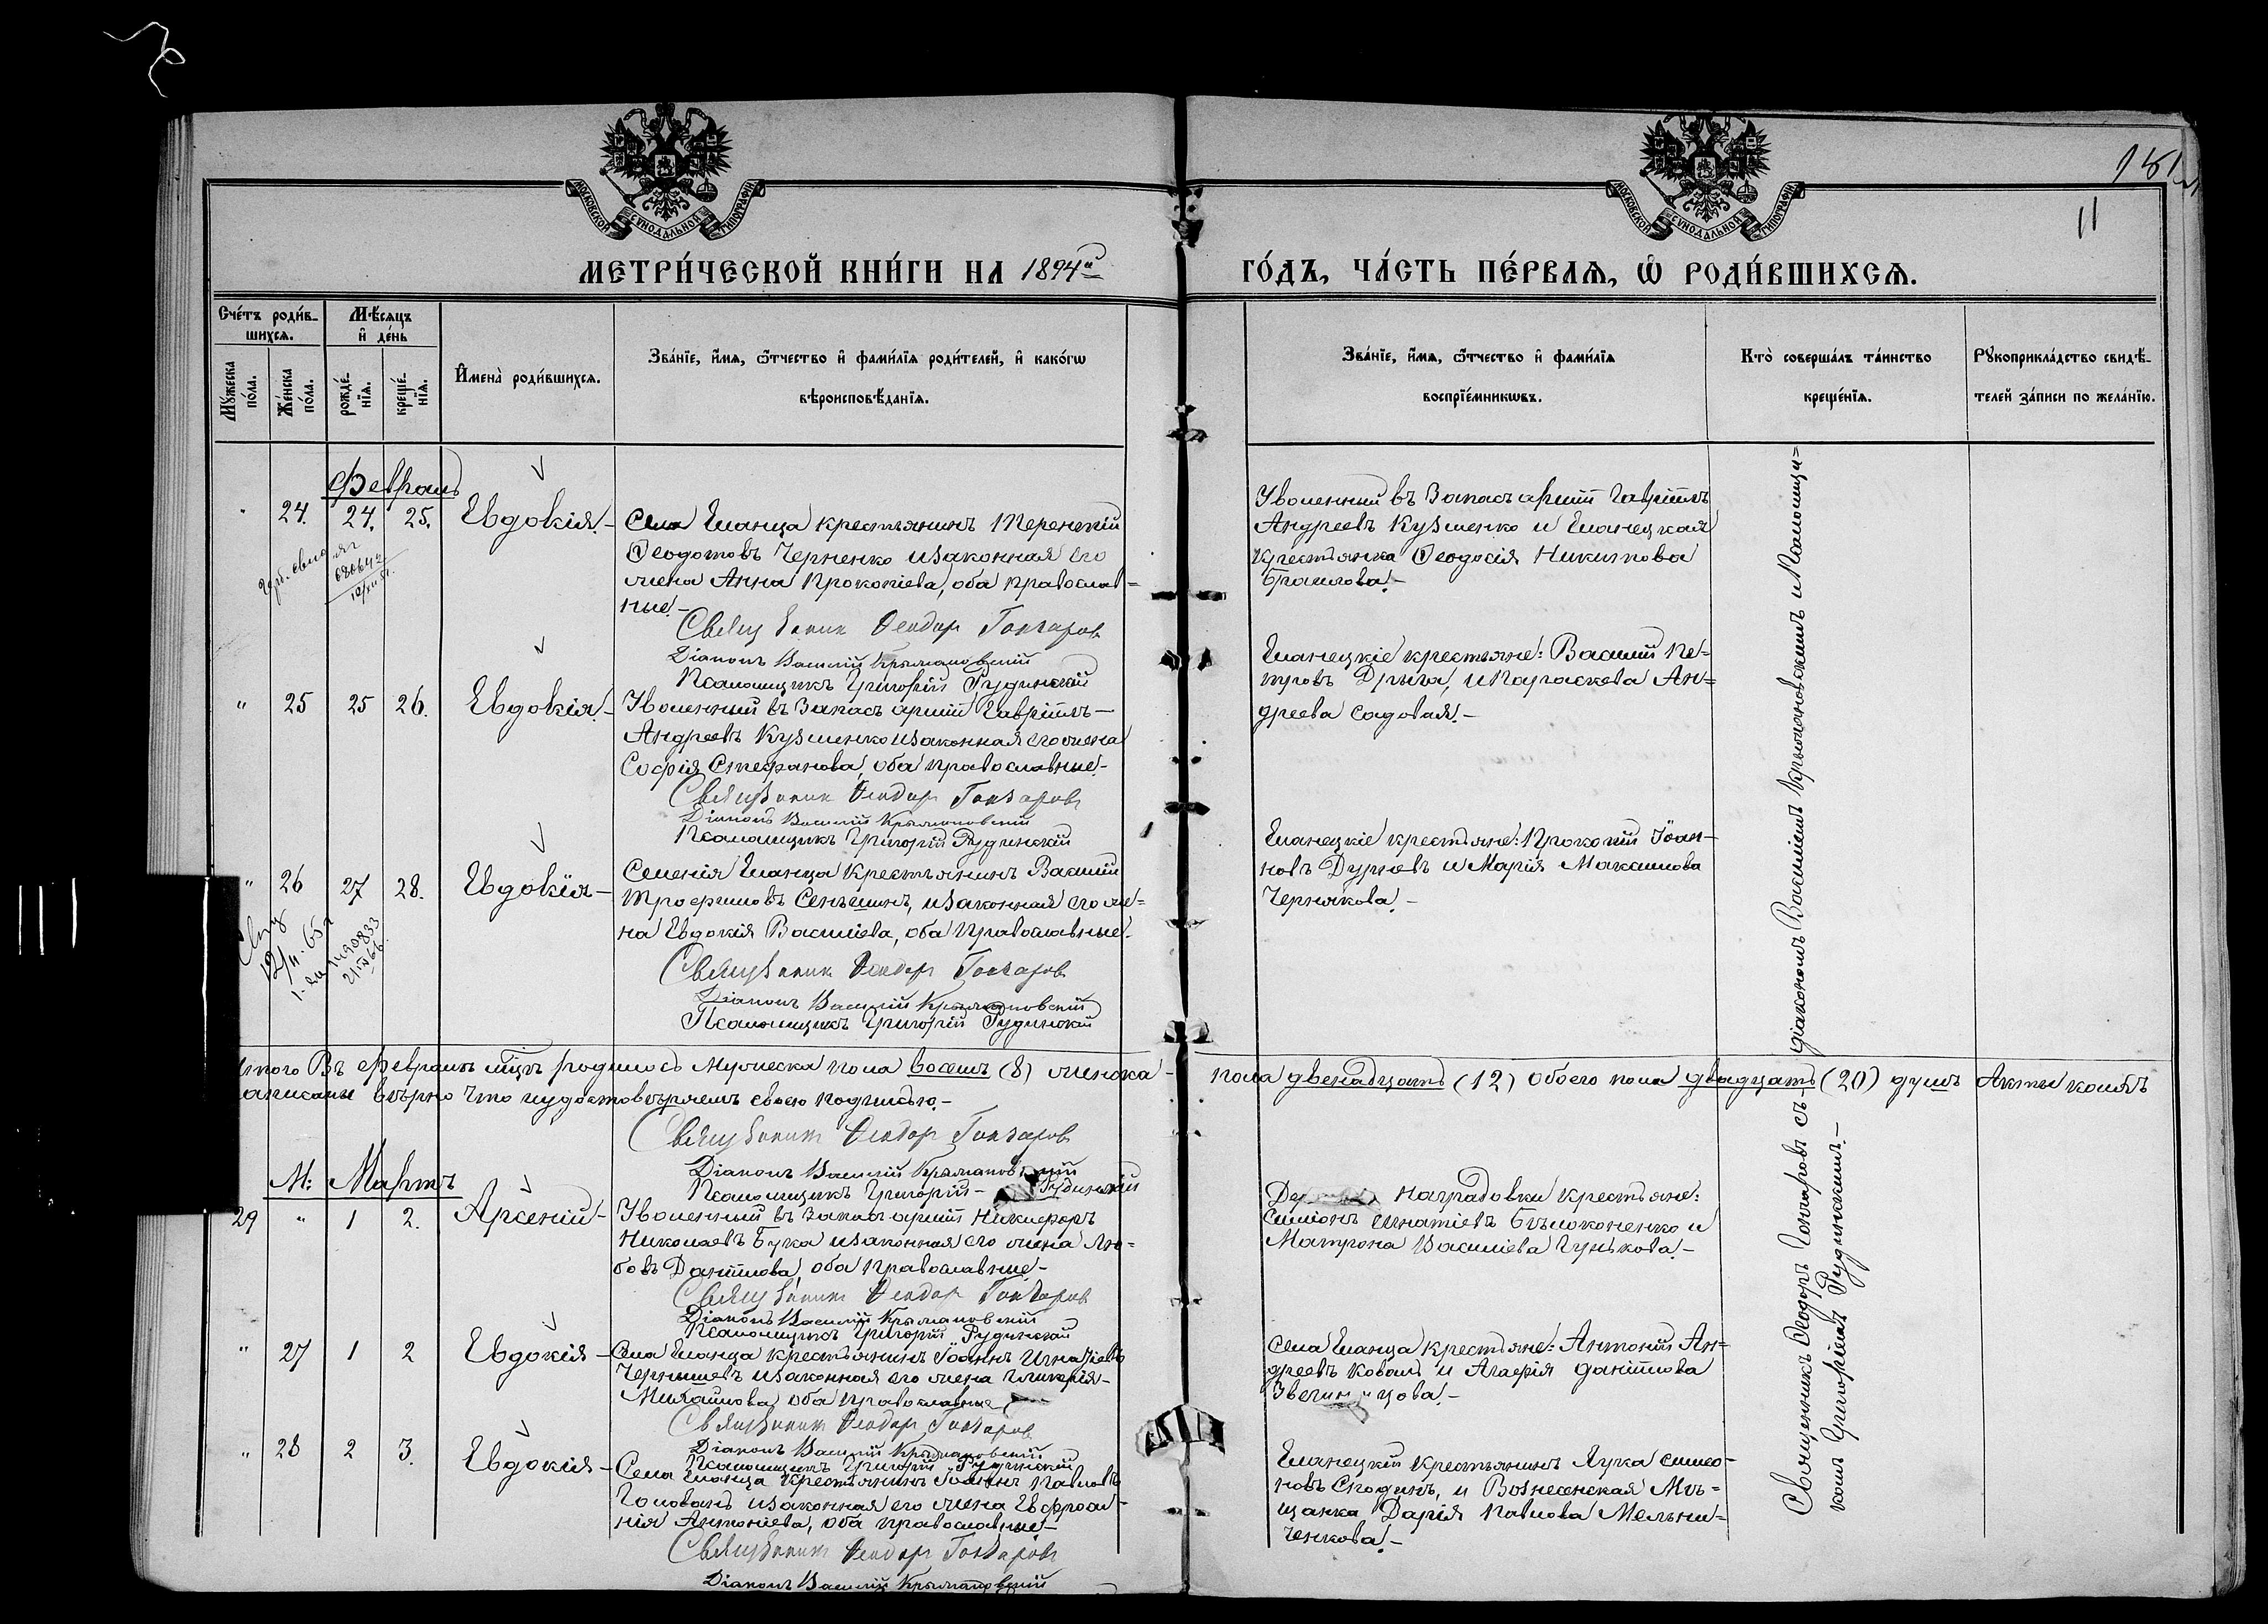 МОСКОВСКОЙ СѴНОДАЛЬНОЙ ТИПОГРАФІИ
МОСКОВСКОЙ СѴНОДАЛЬНОЙ ТИПОГРАФІИ
11
МЕТРИ́ЧЕСКОЙ КНИ́ГИ НА 1894й
ГО́ДЪ, ЧА́СТЬ ПЕ́РВАѦ, Ѡ҆ РОДИ́ВШИХСѦ.
Сче́тъ роди́в-
шихсѧ.
Мꙋ́жеска по́ла.
Же́нска по́ла.
Мѣ́сѧцъ
и҆ де́нь
рожде́-
нїѧ.
креще́-
нїѧ.
И҆мена̀ роди́вшихсѧ.
Зва́нїе, и҆́мѧ, ѻ҆́тчество и҆ фами́лїѧ роди́телей, и҆ како́гѡ
вѣроисповѣ́данїѧ.
Зва́нїе, и҆́мѧ, ѻ҆́тчество и҆ фами́лїѧ
воспрїе́мникѡвъ.
Кто̀ соверша́лъ та́инство
креще́нїѧ.
Рꙋкоприкла́дство свидѣ́-
телей за́писи по жела́нїю.
Февраль
" 24. 24. 25. Евдокія.-
Села Еланца крестьянинъ Терентій
Ѳеодотовъ Черненко и законная его
жена Анна Прокопіева, оба православ=
ные.-
Священник Феодор Гончаров
Діаконъ Василій Крыжановскій
Псаломщикъ Григорій Рудинскій
Уволенный въ запасъ арміи Гавріилъ
Андреевъ Кузменко и Еланецкая
крестьянка Ѳеодосія Никитова
Браилова.-
" 25 25 26. Евдокія.-
Уволенный въ запасъ арміи Гавріилъ-
Андреевъ Кузменко и законная его жена
Софія Стефанова, оба православные.-
Священник Феодор Гончаров
Діаконъ Василій Крыжановскій
Псаломщикъ Григорій Рудинскій
Еланецкіе крестьяне: Василій Пе-
тровъ Дрыга, и Параскева Ан=
дреева Садовая.-
" 26 27 28. Евдокія-
Селенія Еланца крестьянинъ Василій
Трофимовъ Сеньшинъ, и законная его же=
на Евдокія Василіева, оба православные.
Священник Феодор Гончаров
Діаконъ Василій Крыжановскій
Псаломщикъ Григорій Рудинскій
Еланецкіе крестьяне: Прокопій Іоан-
новъ Дурневъ и Марія Максимова
Чернякова.-
Итого Въ февралѣ мцѣ родилось мужеска пола восемь (8) женска - пола двенадцать (12) обоего пола двадцать (20) душъ Акты коихъ
записаны вѣрно что и удостовѣряемъ своею подписью.-
Священник Феодор Гончаров
Діаконъ Василій Крыжановскій
Псаломщикъ Григорій- Рудинскій
М: Мартъ
29 " 1 2. Арсеній-
Уволенный въ запасъ арміи Никифоръ
Николаевъ Бука и законная его жена Лю-
бовъ Даніилова, оба православные-
Священник Феодор Гончаров
Діаконъ Василій Крыжановскій
Псаломщикъ Григорій Рудинскій
Наградовки крестьяне:
Симіонъ Игнатіевъ Бѣлоконенко и
Матрона Василіева Гунькова.-
" 27 1 2 Евдокія-
Села Еланца крестьянинъ Іоаннъ Игнатіевъ
Чернышевъ и законная его жена Гликерія-
Михайлова оба православные
Священник Феодор Гончаров
Діаконъ Василій Крыжановскій
Псаломщикъ Григорій Рудинскій
Села Еланца крестьяне: Антоній Ан-
дреевъ Коваль и Агафія Даніилова
" 28 2 3. Евдокія-
Села Еланца крестьянинъ Іоаннъ Павловъ
Головань и законная его жена Евфроси-
нія Антоніева, оба православные.-
Священник Феодор Гончаров
Діаконъ Василій Крыжановскій
Еланецкій крестьянинъ Лука Симео-
новъ Сподинъ, и Вознесенская Мѣ-
щанка Дарія Павлова Мельни-
ченкова.-
Священникъ Ѳеодоръ Гончаровъ съ діакономъ Василіемъ Крыжановскимъ и Псаломщи=
комъ Григоріемъ Рудинскимъ.-